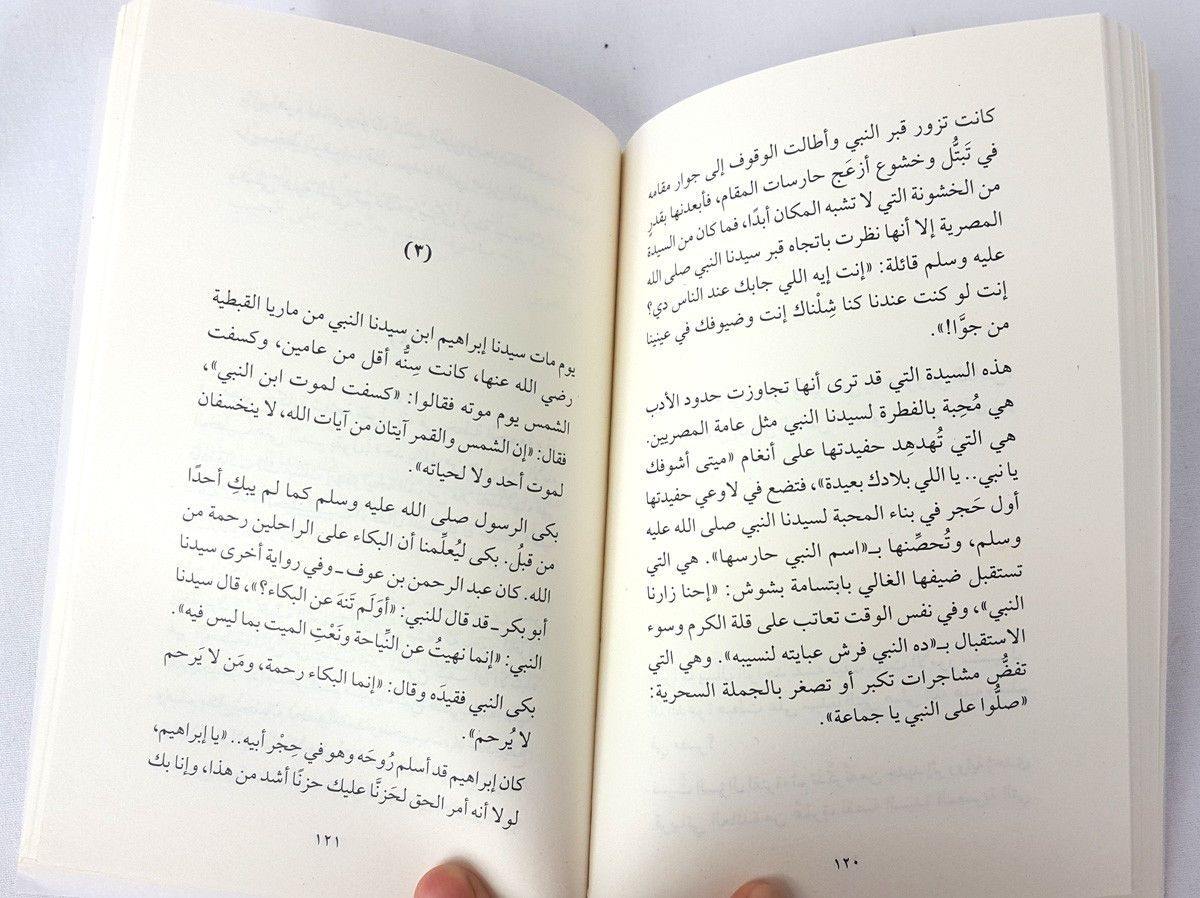 كانت تزور قبر النبي وأطالت الوقوف إلى جوار مقامه
في تَبتُّل وخشوع أزعَج حارسات المقام، فأبعدنها بقدرٍ
من الخشونة التي لا تشبه المكان أبدًا، فما كان من السيدة
المصرية إلا أنها نظرت باتجاه قبر سيدنا النبي صلى الله
عليه وسلم قائلة: «إنت إيه اللي جابك عند الناس دي؟
إنت لو كنت عندنا كنا شِلْناك إنت وضيوفك في عينينا
من جوَّا!».
هذه السيدة التي قد ترى أنها تجاوزت حدود الأدب
هي مُحِبة بالفطرة لسيدنا النبي مثل عامة المصريين.
هي التي تُهدهِد حفيدتها على أنغام «ميتى أشوفك
يا نبي.. يا اللي بلادك بعيدة»، فتضع في لاوعي حفيدتها
أول حَجر في بناء المحبة لسيدنا النبي صلى الله عليه
وسلم، وتُحصِّنها بـ«اسم النبي حارسها». هي التي
تستقبل ضيفها الغالي بابتسامة بشوش: «إحنا زارنا
النبي»، وفي نفس الوقت تعاتب على قلة الكرم وسوء
الاستقبال بـ«ده النبي فرش عبايته لنسيبه». وهي التي
تفضُّ مشاجرات تكبر أو تصغر بالجملة السحرية:
«صلُّوا على النبي يا جماعة».
١٢٠
(٣)
يوم مات سيدنا إبراهيم ابن سيدنا النبي من ماريا القبطية
رضي الله عنها، كانت سِنُّه أقل من عامين، وكسفت
الشمس يوم موته فقالوا: «كسفت لموت ابن النبي»،
فقال: «إن الشمس والقمر آيتان من آيات الله، لا ينخسفان
لموت أحد ولا لحياته».
بكى الرسول صلى الله عليه وسلم كما لم يبكِ أحدًا
من قبلُ. بكى ليُعلِّمنا أن البكاء على الراحلين رحمة من
الله. كان عبد الرحمن بن عوف ـ وفي رواية أخرى سيدنا
أبو بكر ـ قد قال للنبي: «أوَلَم تَنهَ عن البكاء؟»، قال سيدنا
النبي: «إنما نهيتُ عن النِّياحة ونَعْتِ الميت بما ليس فيه».
بكى النبي فقيدَه وقال: «إنما البكاء رحمة، ومَن لا يَرحم
لا يُرحم».
كان إبراهيم قد أسلم رُوحَه وهو في حِجْر أبيه.. «يا إبراهيم،
لولا أنه أمر الحق لحَزِنَّا عليك حزنًا أشد من هذا، وإنا بك
١٢١